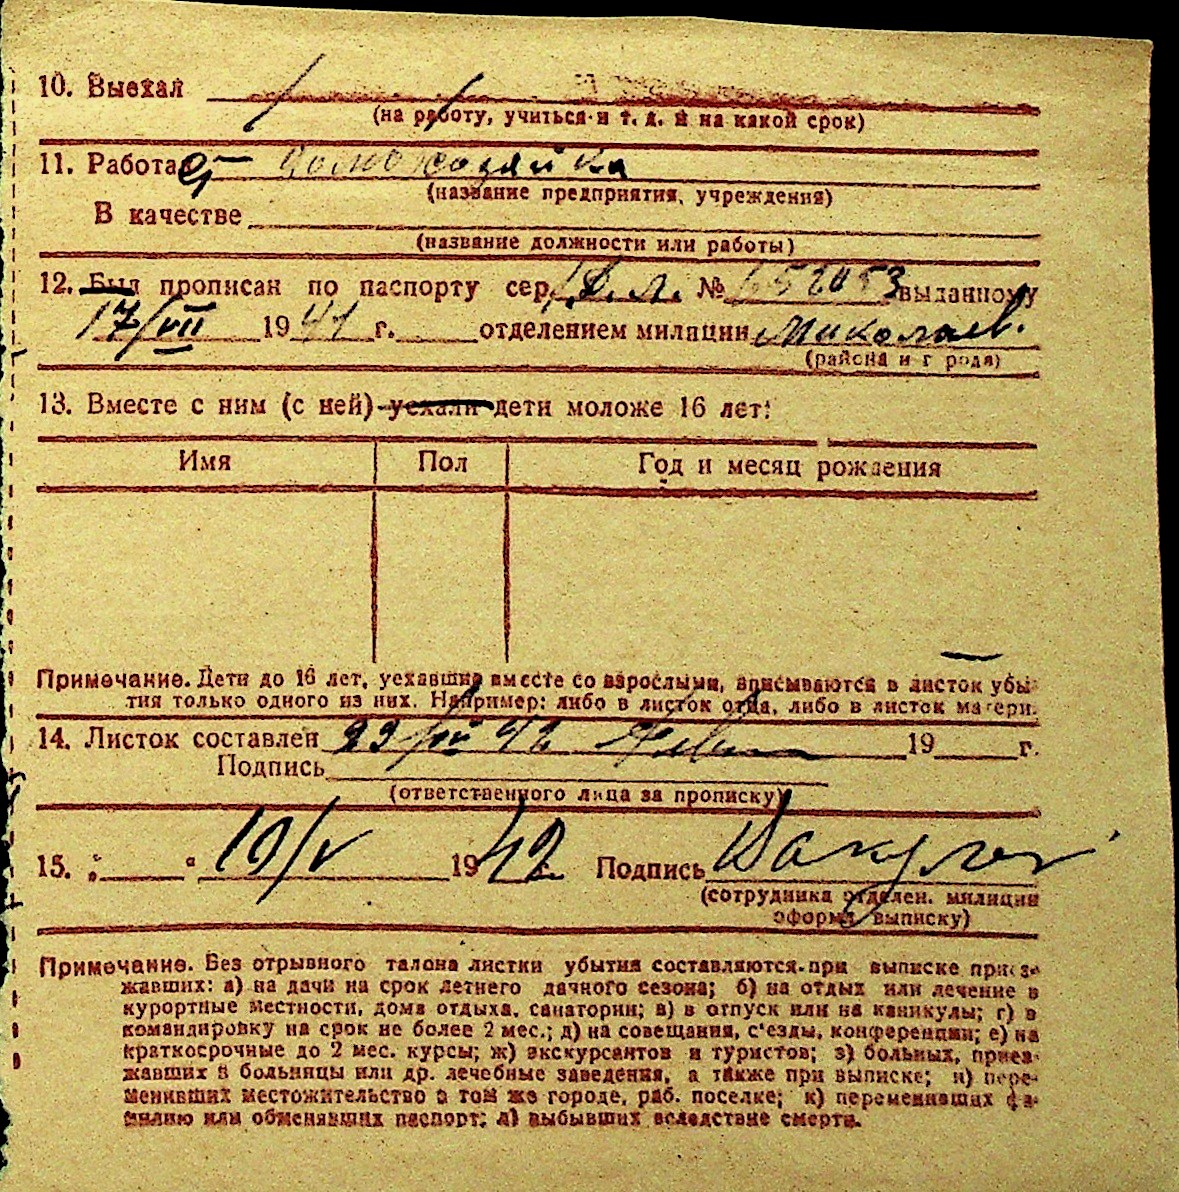 10. Выехал
(на работу, учиться и т. д. и на какой срок)
11. Работает домохозяйка
(название предприятия, учреждения)
В качестве
(название должности или работы)
12. Был прописан по паспорту сер. № 652053 выданному
17/VII 1941 г. отделением милиции Николаев.
(района и города)
13. Вместе с ним (с ней) уехали дети моложе 16 лет:
Имя Пол Год и месяц рождения
Примечание. Дети до 16 лет, уехавшие вместе со взрослыми, вписываются в листок убы-
тия только одного из них. Например: либо в листок отца, либо в листок матери.
14. Листок составлен 42 19 г.
Подпись
(ответственного лица за прописку)
15. „ “ 19/V 1942 Подпись
(сотрудника отделен. милиции
оформ. выписку)
Примечание. Без отрывного талона листки убытия составляются при выписке приез-
жавших: а) на дачи на срок летнего дачного сезона; б) на отдых или лечение в
курортные местности, дома отдыха, санатории; в) в отпуск или на каникулы; г) в
командировку на срок не более 2 мес.; д) на совещания, с'езды, конференции; е) на
краткосрочные до 2 мес. курсы; ж) экскурсантов и туристов; з) больных, приез-
жавших в больницы или др. лечебные заведения, а также при выписке; и) пере-
менивших местожительство в том же городе, раб. поселке; к) переменивших фа-
милию или обменявших паспорт; л) выбывших вследствие смерти.